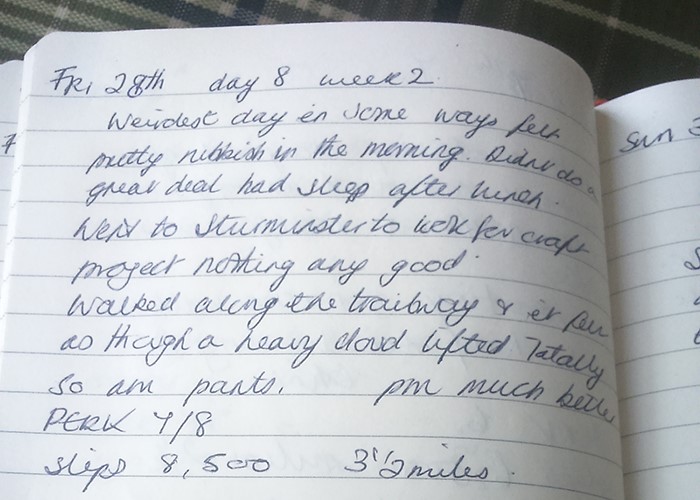 Fri 28th day 8 week 2
Weirdest day in some ways felt
pretty rubbish in the morning. Didnt do a
great deal had sleep after lunch.
Went to Sturminster to look for craft
project nothing any good.
Walked along the trailway & it felt
as though a heavy cloud lifted. Totally
So am pants. pm much better
PERK 7/8
Steps 8,500 3 1/2 miles.
Sun 3
7